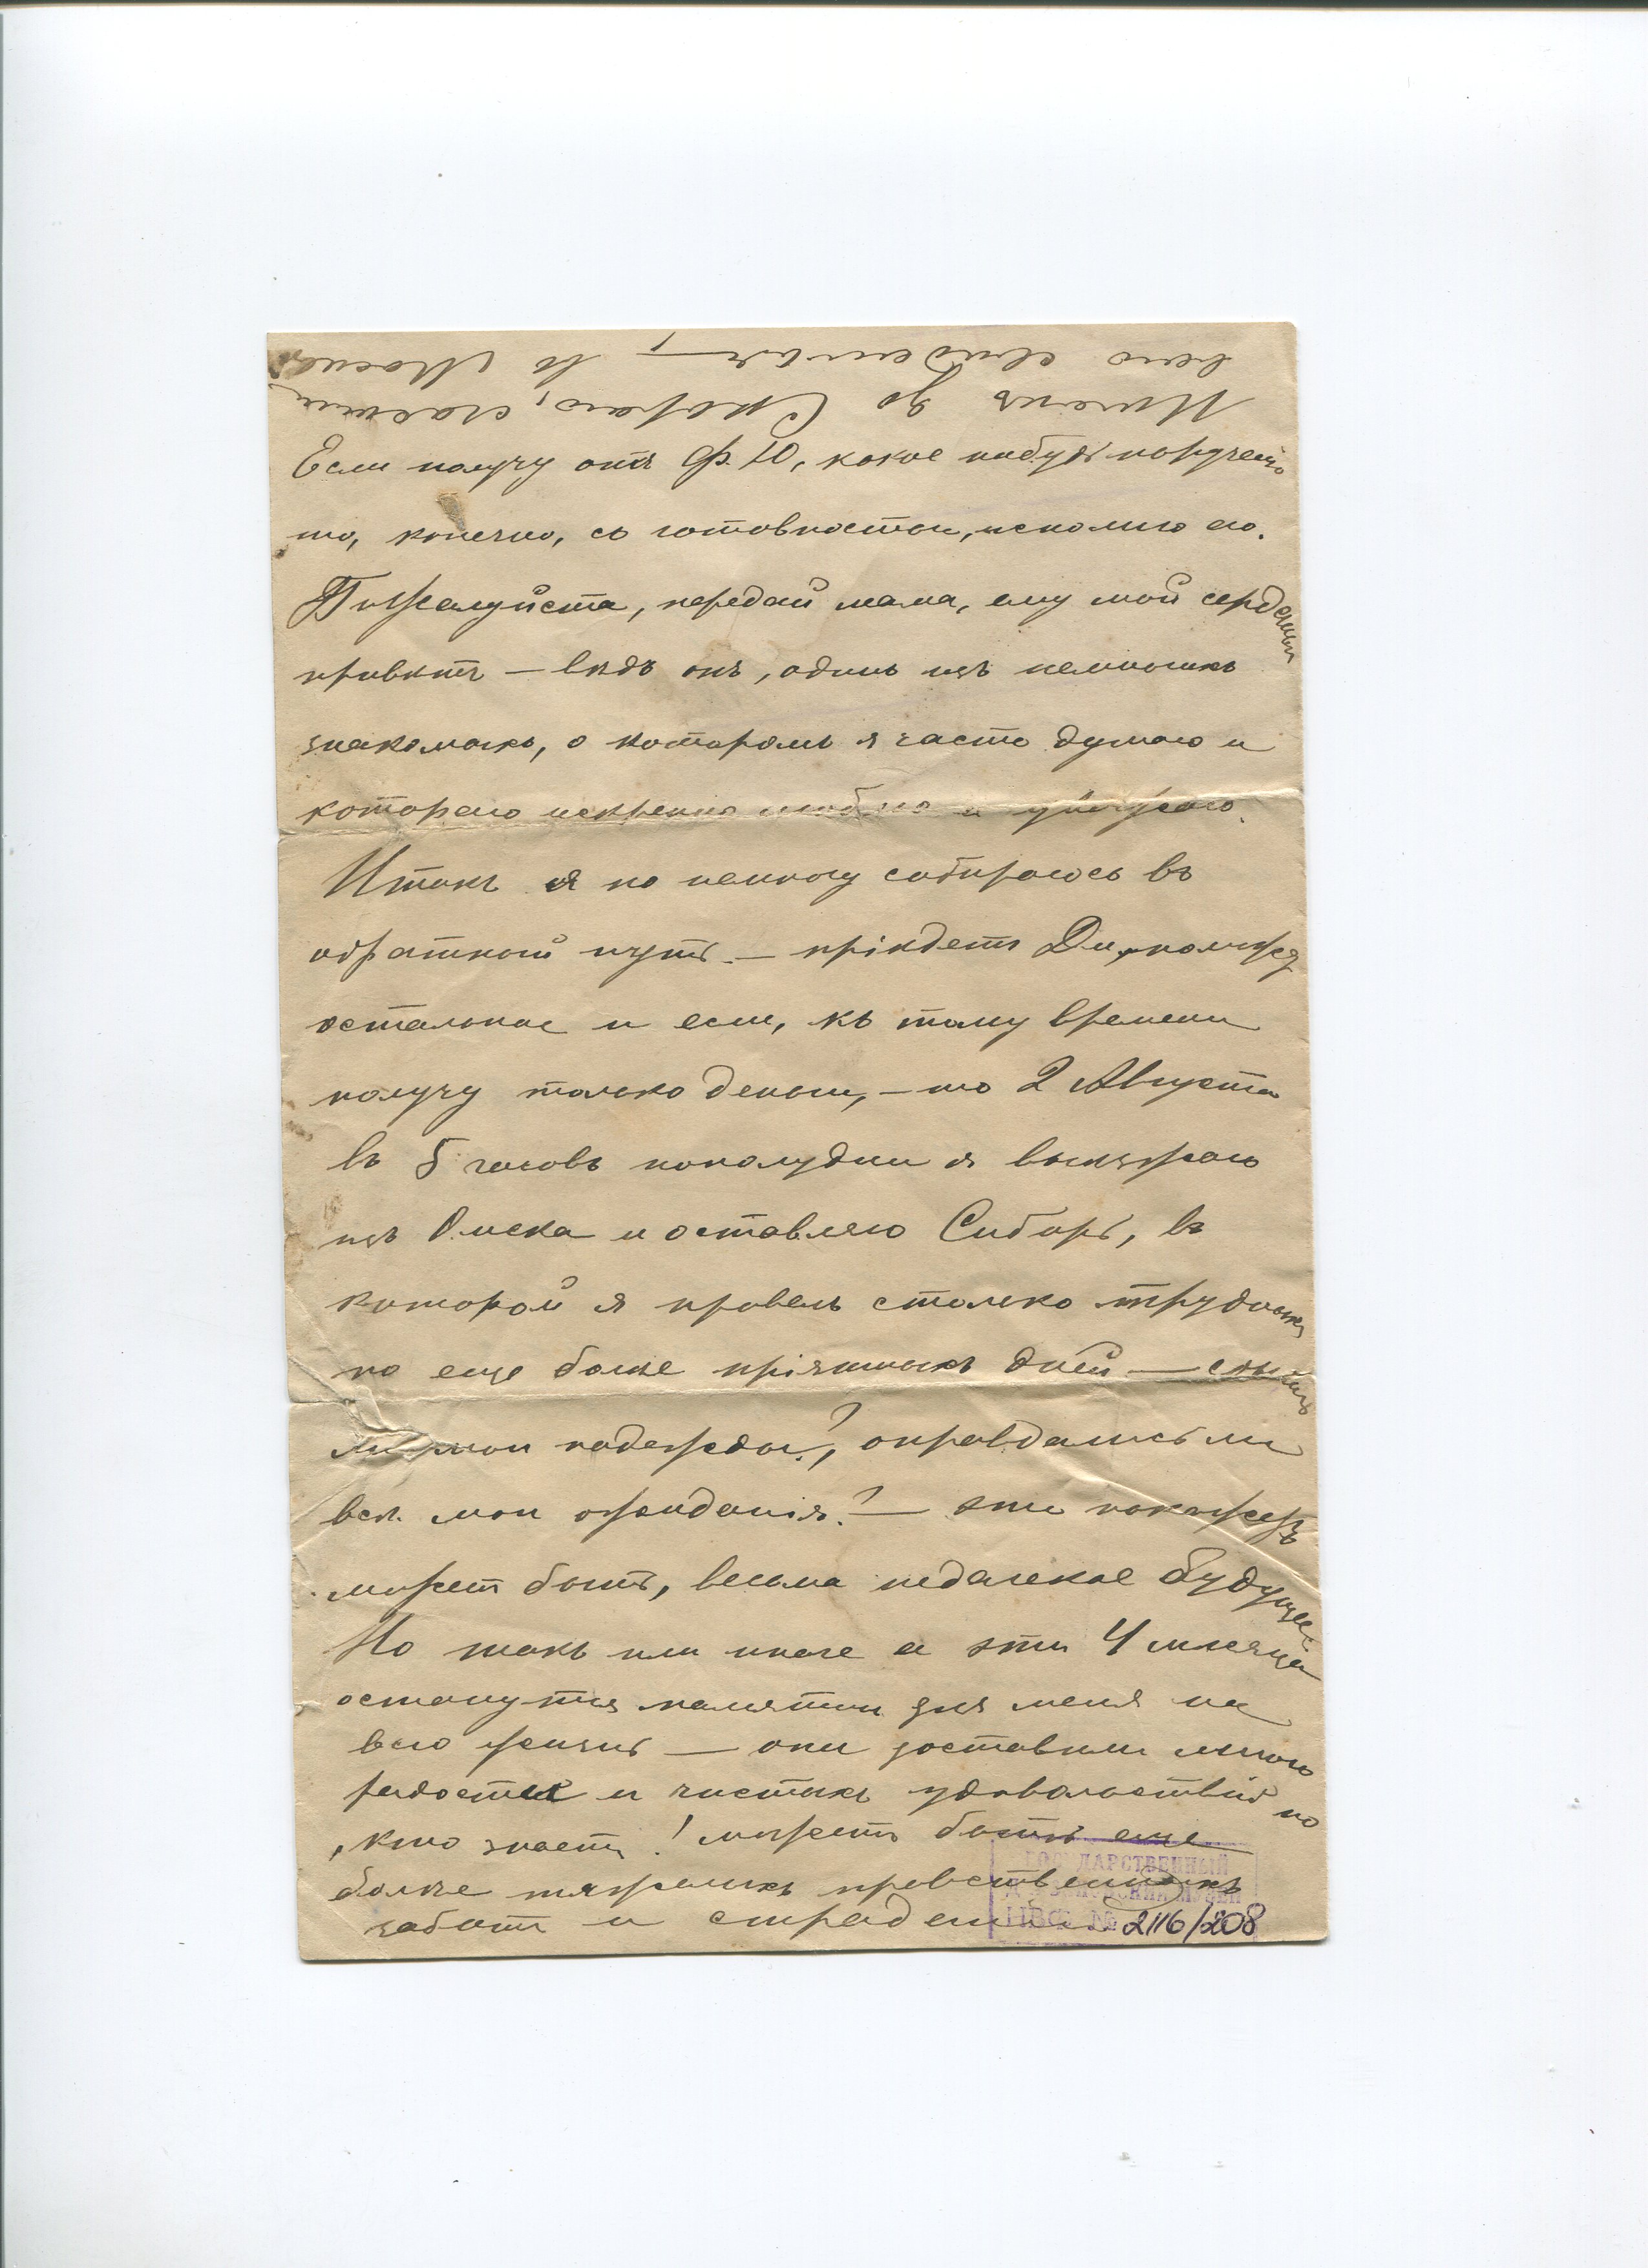 Если получу отъ Ф. Ю, какое нибудь порученіе
то, конечно, съ готовностью, исполню его.
Пожалуйста, передай мама, ему мой сердечный
привѣтъ — вѣдь онъ, одинъ изъ немногихъ
знакомыхъ, о которомъ я часто думаю и
котораго искренно люблю и уважаю.
Итакъ я по немногу собираюсь въ
обратный путь. — пріѣдетъ Дм,
остальное и если, къ тому времени
получу только деньги, — то 2 Августа
въ 5 часовъ пополудни я выѣзжаю
изъ Омска и оставляю Сибирь, въ
которой я провелъ столько трудныхъ
но еще болѣе пріятныхъ дней —
ли мои надежды?, оправдались ли
всѣ мои ожиданія? — это покажетъ
можетъ быть, весьма недалекое будущее.
Но такъ или иначе а эти 4 мѣсяца
останутся памятны для меня на
всю жизнь — они доставили много
радостей и чистыхъ удовольствій но
, кто знаетъ! можетъ быть еще
болѣе тяжелыхъ нравственныхъ
заботъ и страданій
Итакъ до скораго, счастли
ваго свиданья, въ Москвѣ
ГОСУДАРСТВЕННЫЙ
МУЗЕЙ
№ 2116/208